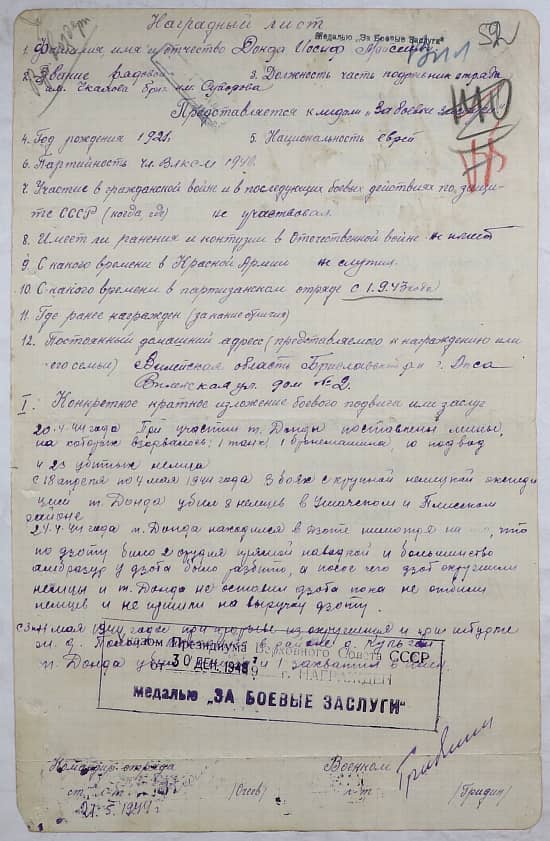 Наградный лист
Медалью „За Боевые Заслуги"
52
1. Фамилия, имя и отчество Донда Иосиф
2. Звание рядовой 3. Должность часть подрывник отряда
им. Чкалова бриг. им. Суворова
Представляется к медали „За боевые заслуги"
4. Год рождения 1921г. 5. Национальность еврей
6. Партийность чл. Влксм 1940г.
7. Участие в гражданской войне и в последующих боевых действиях по защи-
те СССР (когда, где) не участвовал.
8. Имеет ли ранения и контузии в Отечественной войне не имеет
9. С какого времени в Красной Армии не служил.
10. С какого времени в партизанском отряде с 1.9.43 года
11. Где ранее награжден (за какие отличия)
12. Постоянный домашний адрес (представляемого к награждению или
его семьи) Вилейская область р-н г.
ул. дом № 2.
I. Конкретное краткое изложение боевого подвига или заслуг
20.4.44 года При участии т. Донды поставлены мины,
на которых взорвалось: 1 танк, 1 бронемашина, 10 подвод
и 23 убитых немца.
С 18 апреля по 4 мая 1944 года в боях с крупной немецкой экспеди
цией т. Донда убил 8 немцев в Ушачском и Плисском
районе
24.4.44 года т. Донда находился в дзоте несмотря на то, что
по дзоту било 2 орудия прямой наводкой и большинство
амбразур у дзота было разбито, а после чего дзот окружили
немцы и т. Донда не оставил дзота пока не отбили
немцев и не пришли на выручку дзоту.
мая 1944 года при прорыве из окружения и при штурме
т. Донда и 1 захватил в плен
Указом Президиума Верховного Совета СССР
от 30 ДЕК 1948 г. НАГРАЖДЕН
медалью „ЗА БОЕВЫЕ ЗАСЛУГИ"
Командир отряда Военком
ст. л-т л-т (Гридин)
21.5.1944 г.